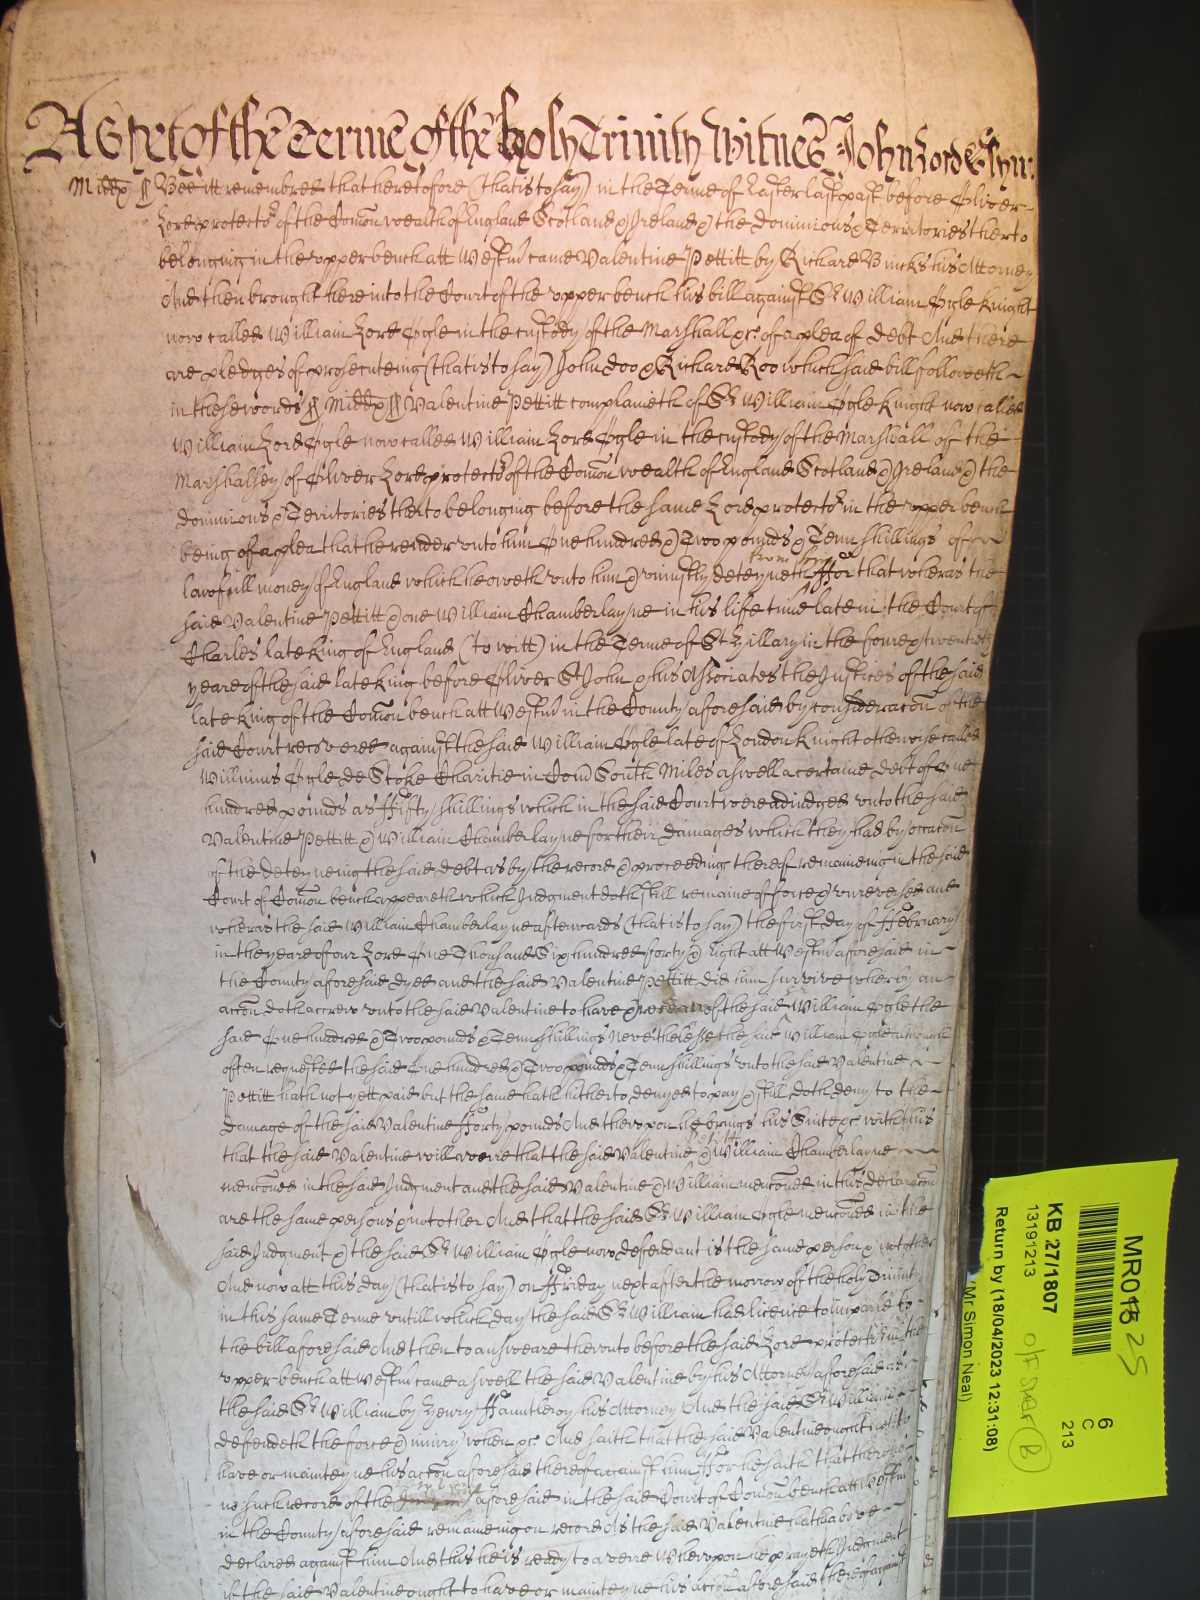 As yet of the Terme of the holy Trinity Witnes John Lord Glyn:
Middx ss Bee itt remembred that heretofore (that is to say) in the Terme of Easter last past before Oliver
Lord protector of the Comon wealth of England Scotland & Ireland & the dominions & Territories therto
belonging in the upper bench att Westm came Valentine Pettitt by Richard Bucks his Attorney
And then brought here into the Court of the upper bench his bill against Sr William Ogle Knight
now called William Lord Ogle in the custody of the Marshall &c: of a plea of debt And there
are pledges of prosecuteing (that is to say) John Doo & Richard Roo which said bill followeth
in these words ss Middx ss Valentine Pettitt complaineth of Sr William Ogle Knight now called
William Lord Ogle now called William Lord Ogle in the custody of the Marshall of the
Marshalsey of Oliver Lord protector of the Comon wealth of England Scotland & Ireland & the
dominions & Territories therto belonging before the same Lord protector in the upper bench
being of a plea that he render unto him One hundred & Two pounds & Tenn shillings of
lawfull money of England which he oweth unto him & uniustly deteyneth from him ffor that wheras the
said Valentine Pettitt & one William Chamberlayne in his life time late in the Court of
Charles late King of England (to witt) in the Terme of St Hillary in the fowre & twentieth
yeare of the said late King before Oliver St John & his Associates the Justices of the said
late King of the Comon bench att Westm in the County aforesaid by consideracon of the
said Court recovered against the said William Ogle late of London Knight otherwise called
Williums Ogle de Stoke Charitie in Com South Miles aswell a certaine debt of One
hundred pounds as ffifty shillings which in the said Court were adiudged unto the said
Valentine Pettitt & William Chamberlayne for their damages which they had by occacon
of the deteyneing the said debt as by the record & proceeding thereof remaineing in the said
Court of Comon bench appeareth which Judgment doth still remaine of force & unreversed and
wheras the said William Chamberlayne afterwards (that is to say) the first day of ffebruary
in the yeare of our Lord One Thousand Six hundred forty & Eight att Westm aforesaid in
the County aforesaid dyed and the said Valentine Pettitt did him survive wherby an
accon doth accrew unto the said Valentine to have & of the said William Ogle the
said One hundred & Two pounds & Tenn shillings Neverthelesse the said William Ogle although
often requested the said One hundred & Two pounds & Tenn shillings unto the said Valentine
Pettitt hath not yett paid but the same hath hitherto denyed to pay & still doth deny to the
damage of the said Valentine fforty pounds And therupon he brings his Suite &c with this
that the said Valentine will averre that the said Valentine Pettitt & William Chamberlayne
menconed in the said Judgment and the said Valentine & William menconed in this declaracon
are the same persons & not other And that the said Sr William Ogle menconed in the
said Judgment & the said Sr William Ogle now defendant is the same person & not other
And now att this day (that is to say) on ffriday next after the morrow of the holy Trinity
in this same Terme untill which day the said Sr William had licence to imparle to
the bill aforesaid And then to answeare therunto before the said Lord protector in the
upper bench att Westm came aswell the said Valentine by his Attorney aforesaid as
the said Sr William by Henry ffauntleroy his Attorney And the said Sr William
defendeth the force & iniury when &c And saith that the said Valentine ought not to
have or mainteyne his accon aforesaid thereof against him ffor he saith that there is
no such record of the aforesaid in the said Court of Comon bench att Westm
in the County aforesaid remaineing on record As the said Valentine hath above
declared against him And this he is ready to averre Wherupon he prayeth Judgment
if the said Valentine ought to have or mainteyne his accon aforesaid thereof against
MR018 25
6
C
213
KB 27/1807
13191213
Return by (18/04/2023 12:31:08)
(Mr Simon Neal)
B